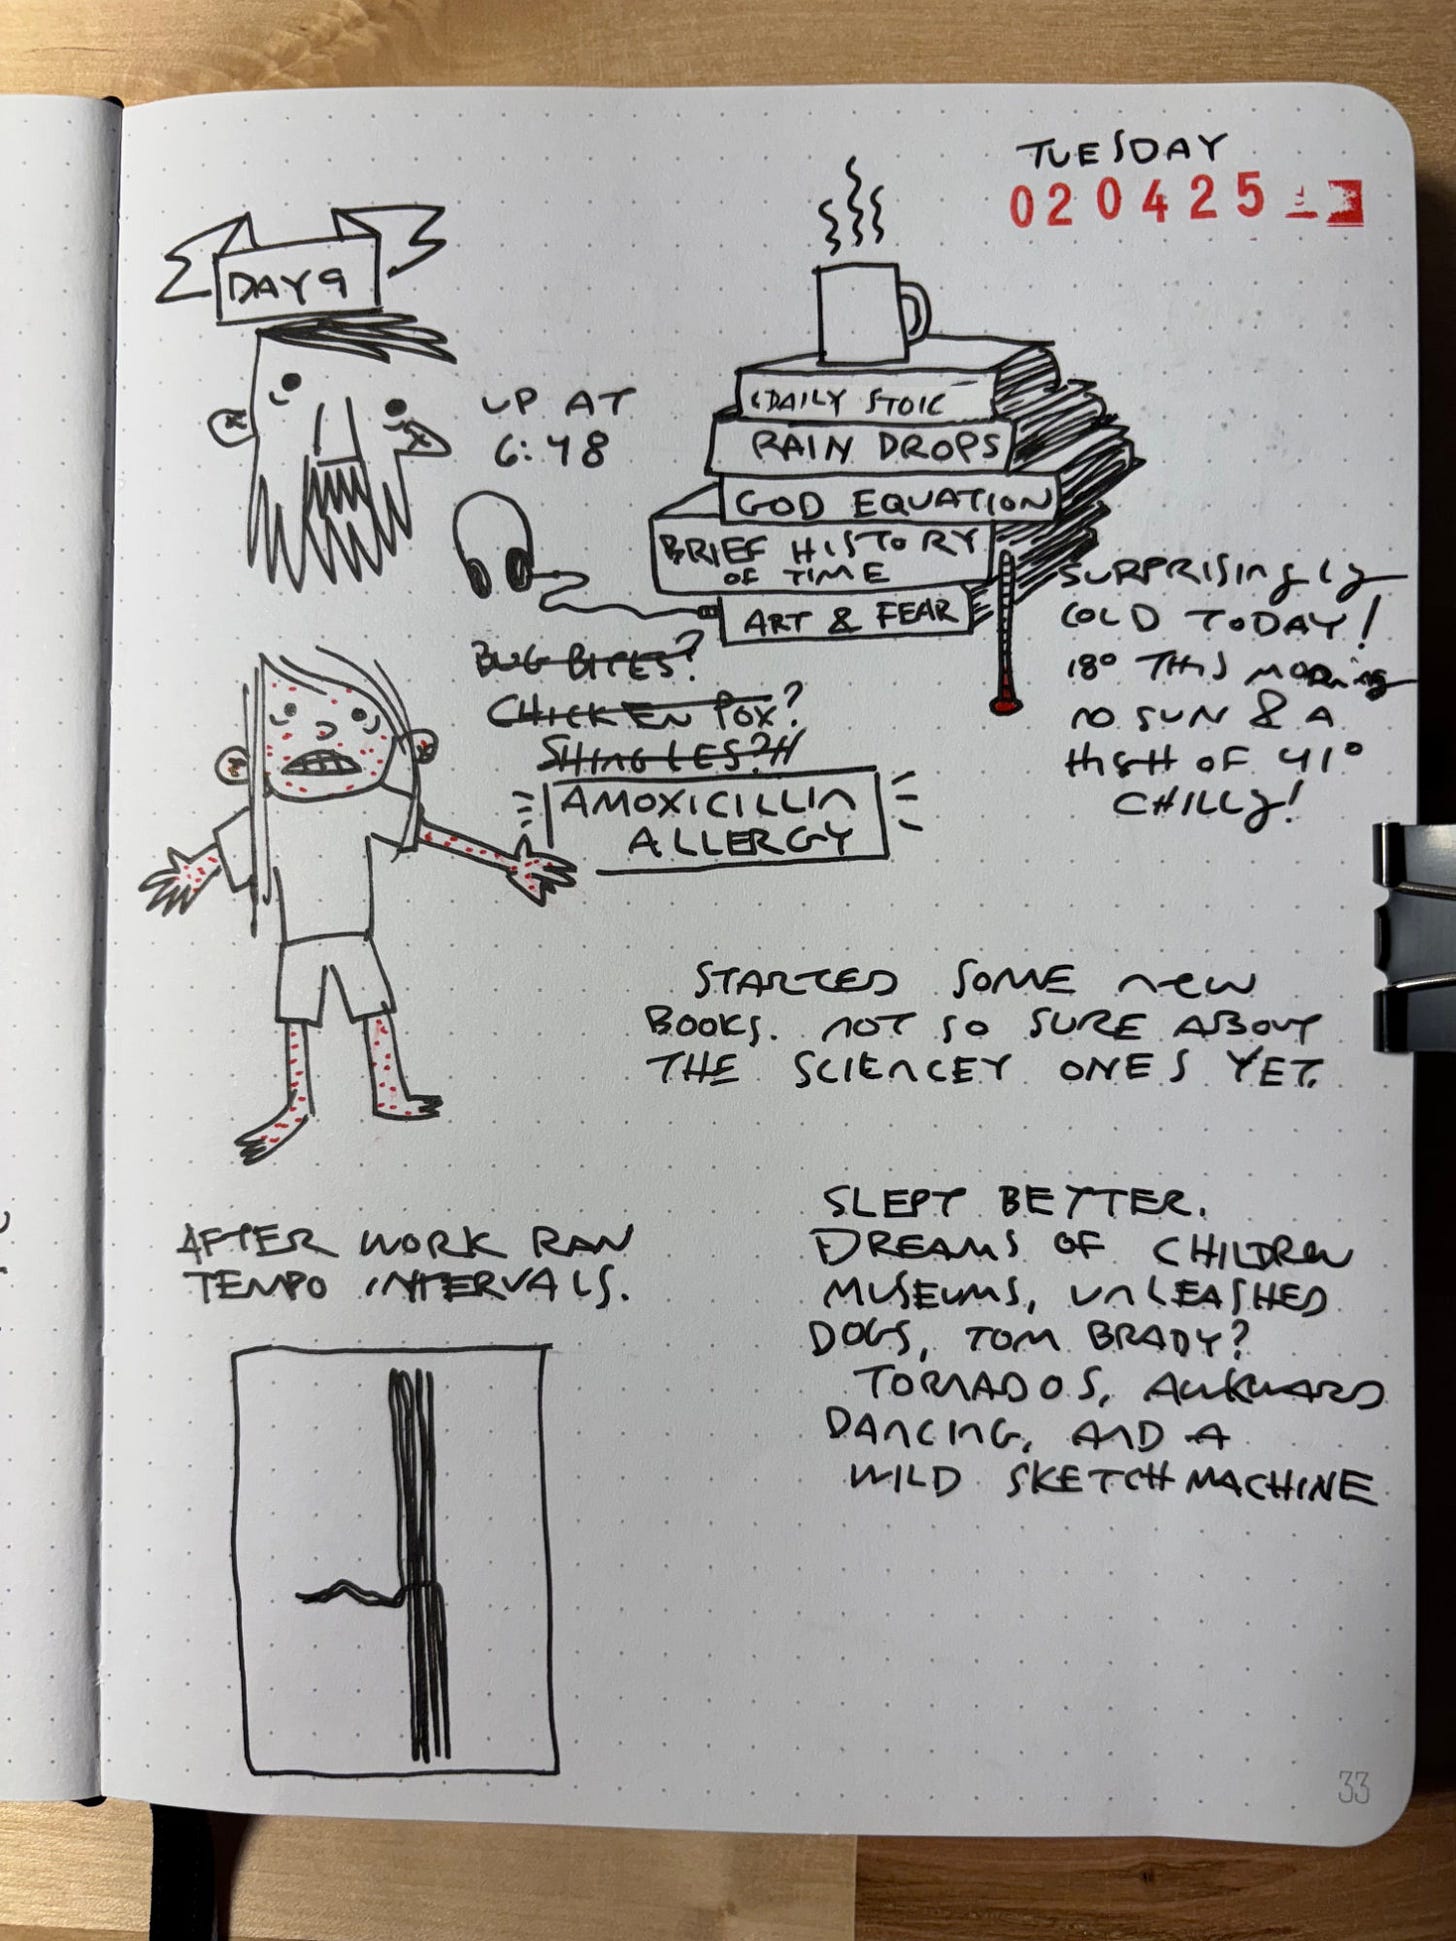 TUESDAY
020425
DAY 9
UP AT
6:48
DAILY STOIC
RAIN DROPS
GOD EQUATION
BRIEF HISTORY
OF TIME
ART & FEAR
SURPRISINGLY
COLD TODAY!
18° THIS MORNING
NO SUN & A
HIGH OF 41°
CHILLY!
BUG BITES?
CHICKEN POX?
SHINGLES?!!
AMOXICILLIN
ALLERGY
STARTED SOME NEW
BOOKS. NOT SO SURE ABOUT
THE SCIENCEY ONES YET.
AFTER WORK RAN
TEMPO INTERVALS.
SLEPT BETTER.
DREAMS OF CHILDREN
MUSEUMS, UNLEASHED
DOGS, TOM BRADY?
TORNADOS, AWKWARD
DANCING, AND A
WILD SKETCH MACHINE
33